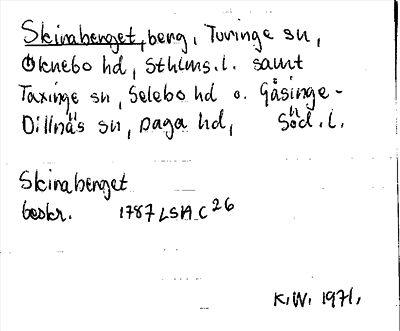 Skiraberget, berg, Turinge sn,
Öknebo hd, Sthlms. l. samt
Taxinge sn, Selebo hd o. Gåsinge-
Dillnäs sn, Daga hd, Söd. l.
Skiraberget
beskr. 1787 LSA C26
K.W. 1971.